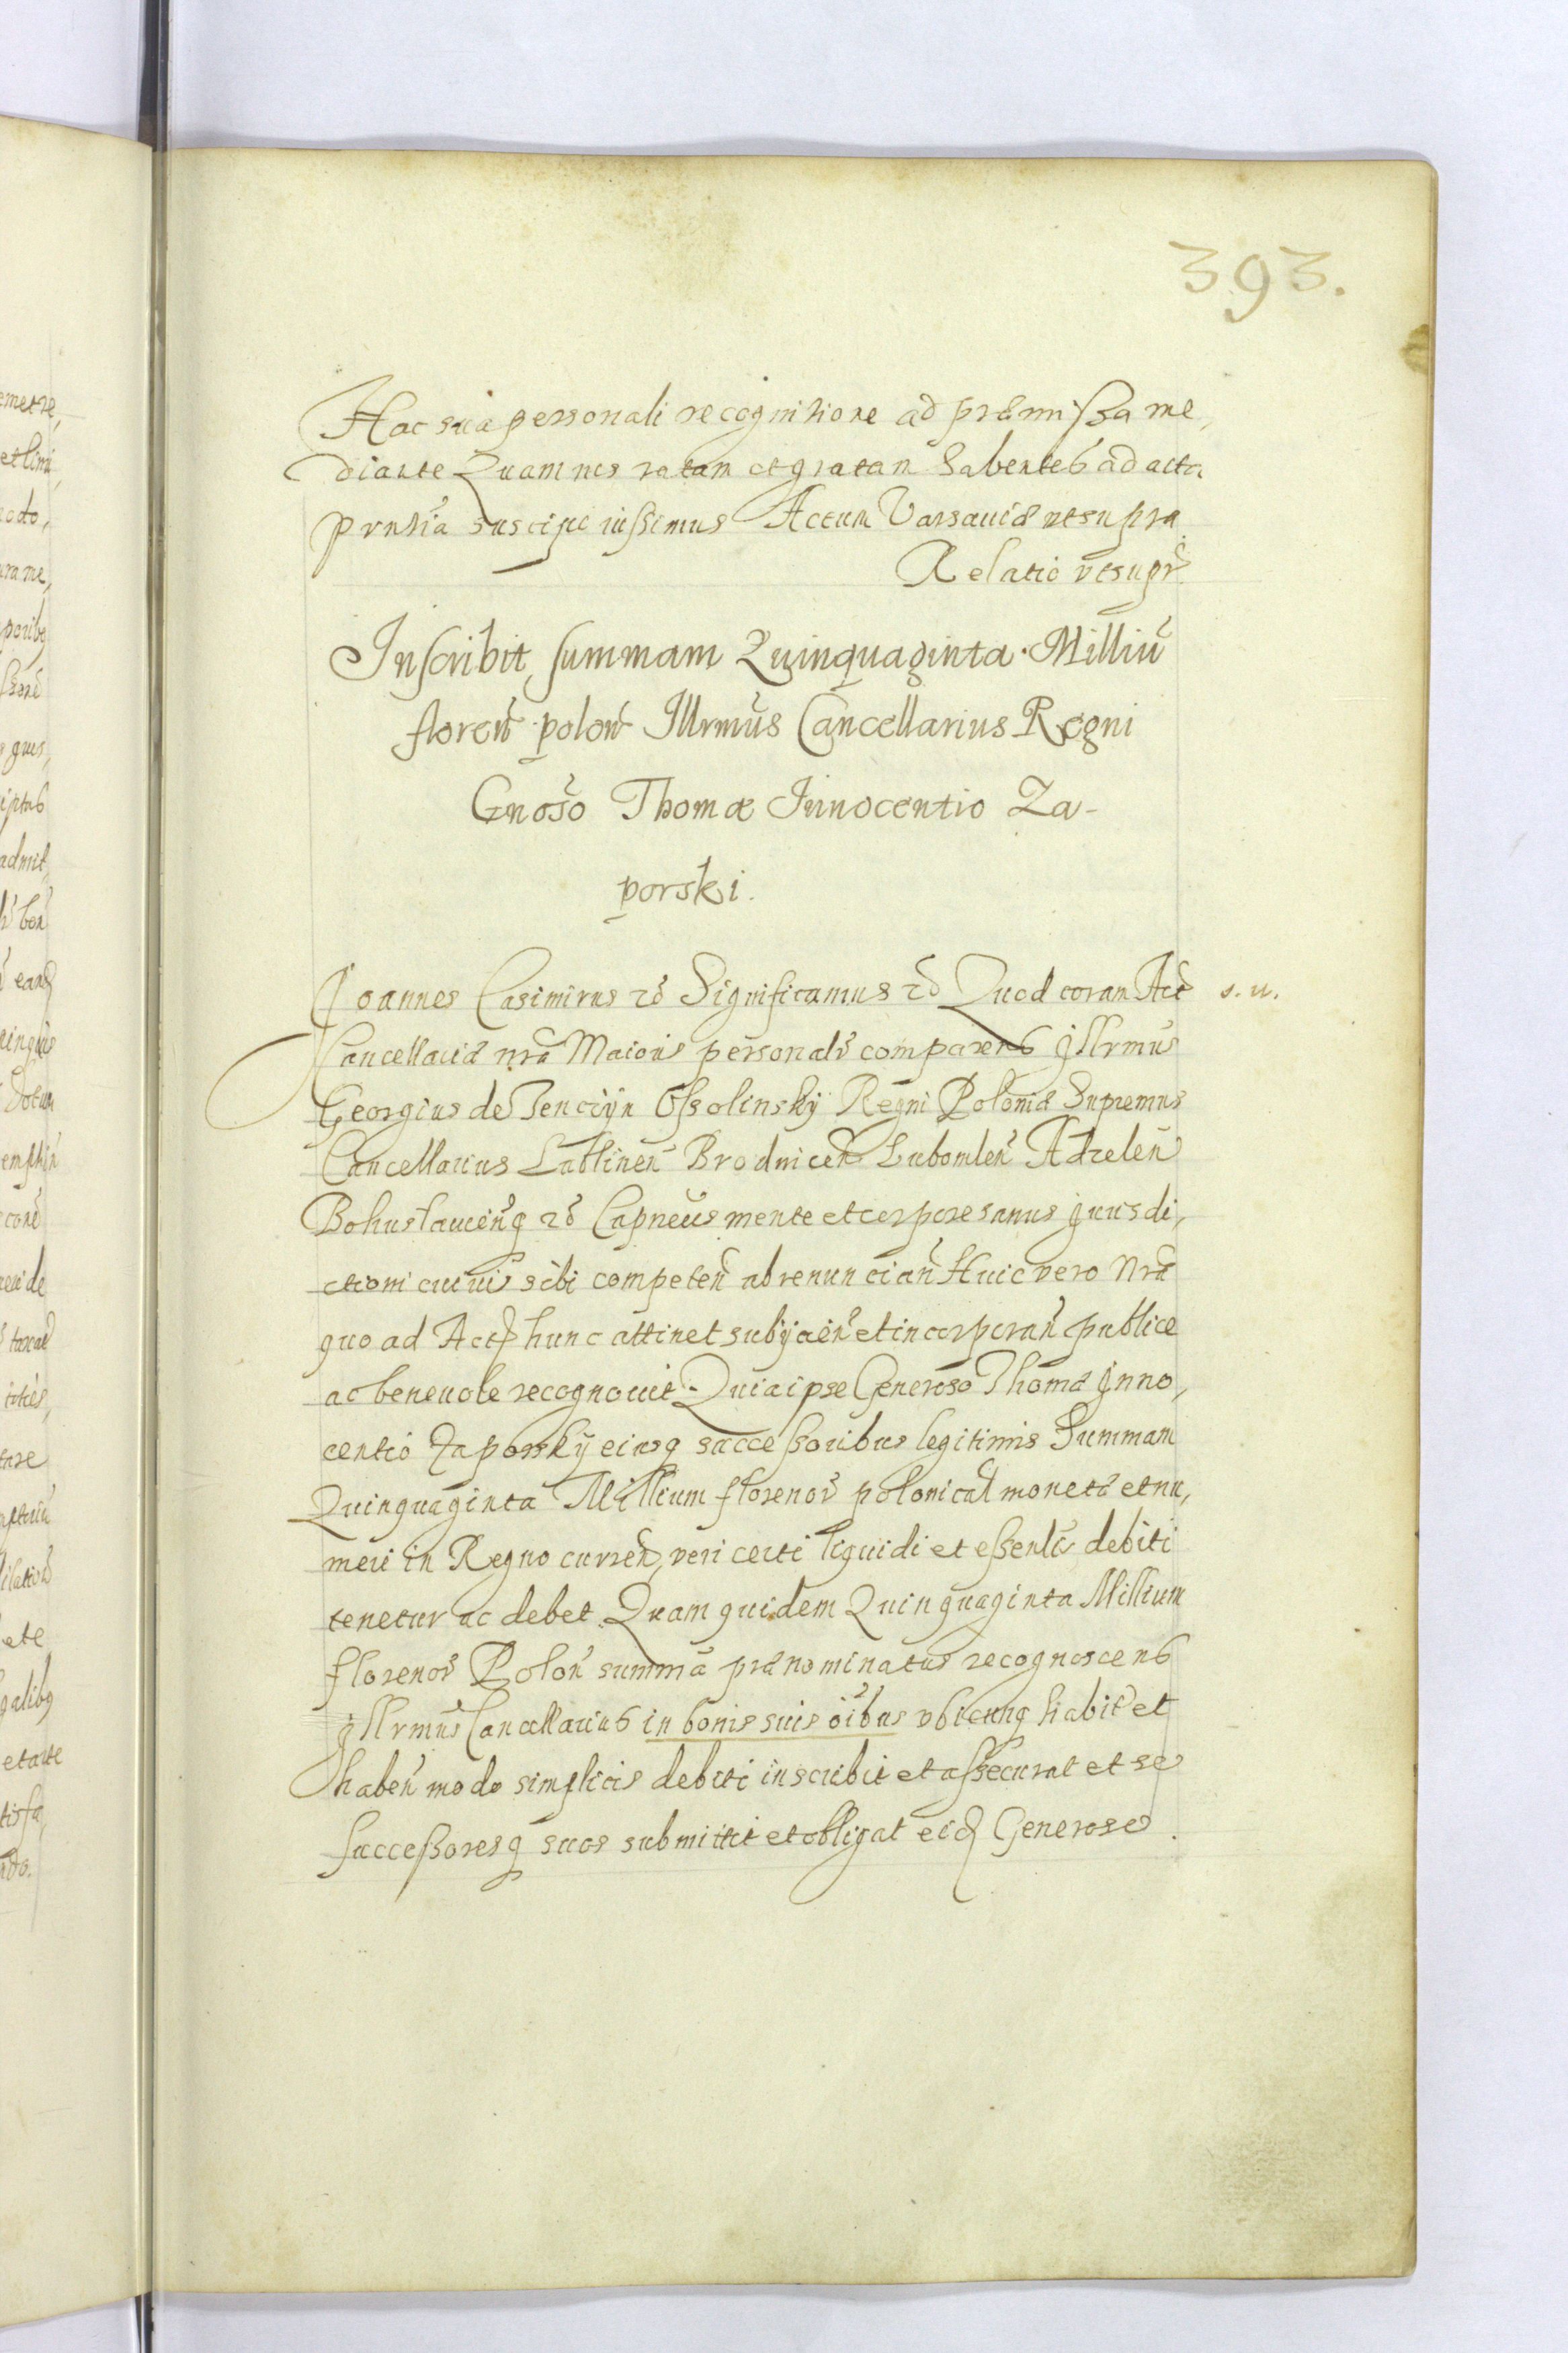 393.
Hac sua personali recognitione ad præmissa me,
diante Quam nos ratam et gratam habentes ad acta
prntia suscipi iussimus Actum Varsaviæ ut supra
Relatio ut supr
Inscribit summam Quinquaginta Milliū
floren polon Illrmus Cancellarius Regni
Gnoso Thomæ Innocentio Za-
porski.
Joannes Casimirus &c Significamus &c Quod coram Act s. u.
Cancellariæ nrã Maioris personalr comparens Jllrmus
Georgius de Tenczyn Ossolinsky Regni Poloniæ Supremus
Cancellarius Lublinen Brodnicen Lubomlen Adzelen
Bohuslaucenq &c Capneus mente et corpore sanus Jurisdi,
ctioni cuivis sibi competen abrenuncian Huic vero Nrã
quo ad Act hunc attinet subijcien et incorporan publice
ac benevole recognovit. Quia ipse Generoso Thomæ Jnno,
centio Zaporsky eiusq successoribus legitimis Summam
Quinquaginta Millium florenor polonical monetæ et nu,
meri in Regno curren, veri certi liquidi et essenlis debiti
tenetur ac debet. Quam quidem Quinquaginta Millium
florenor Polon summã prænominatus recognoscens
Jllrmus Cancellarius in bonis suis oibus ubicunq habit et
haben modo simplicis debiti inscribit et assecurat et se
successoresq suos submittit et obligat eid Generoso